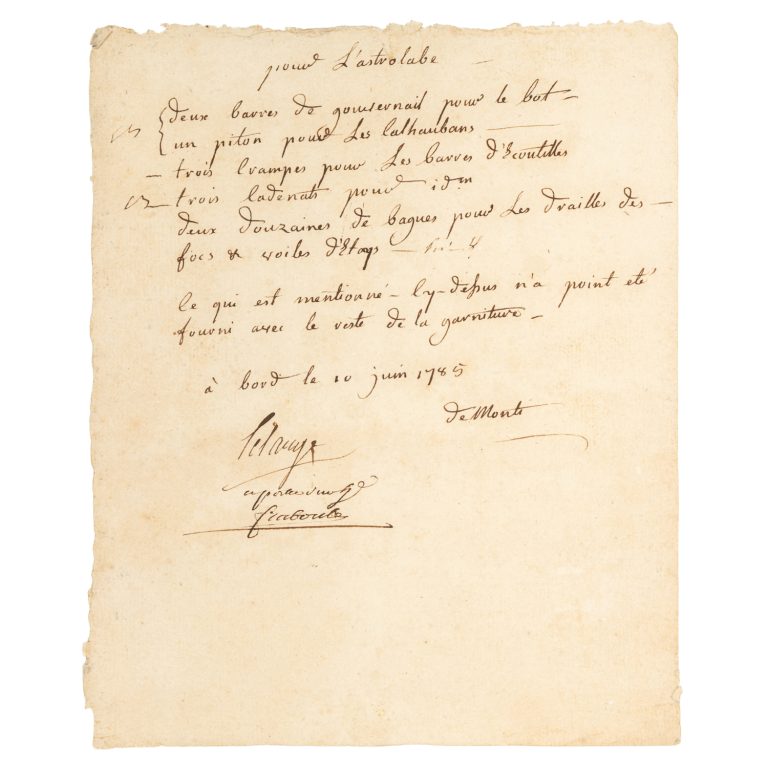 pour L'astrolabe
deux barres de gouvernail pour le bot
un piton pour Les Calhaubans
trois Crampes pour Les barres d'Ecoutilles
trois Cadenats pour idm
deux douzaines de bagues pour Les drailles des
focs & voiles d'Etays
Ce qui est mentionné Cy-dessus n'a point eté
fourni avec le reste de la garniture
à bord le 10 juin 1785
de Monti